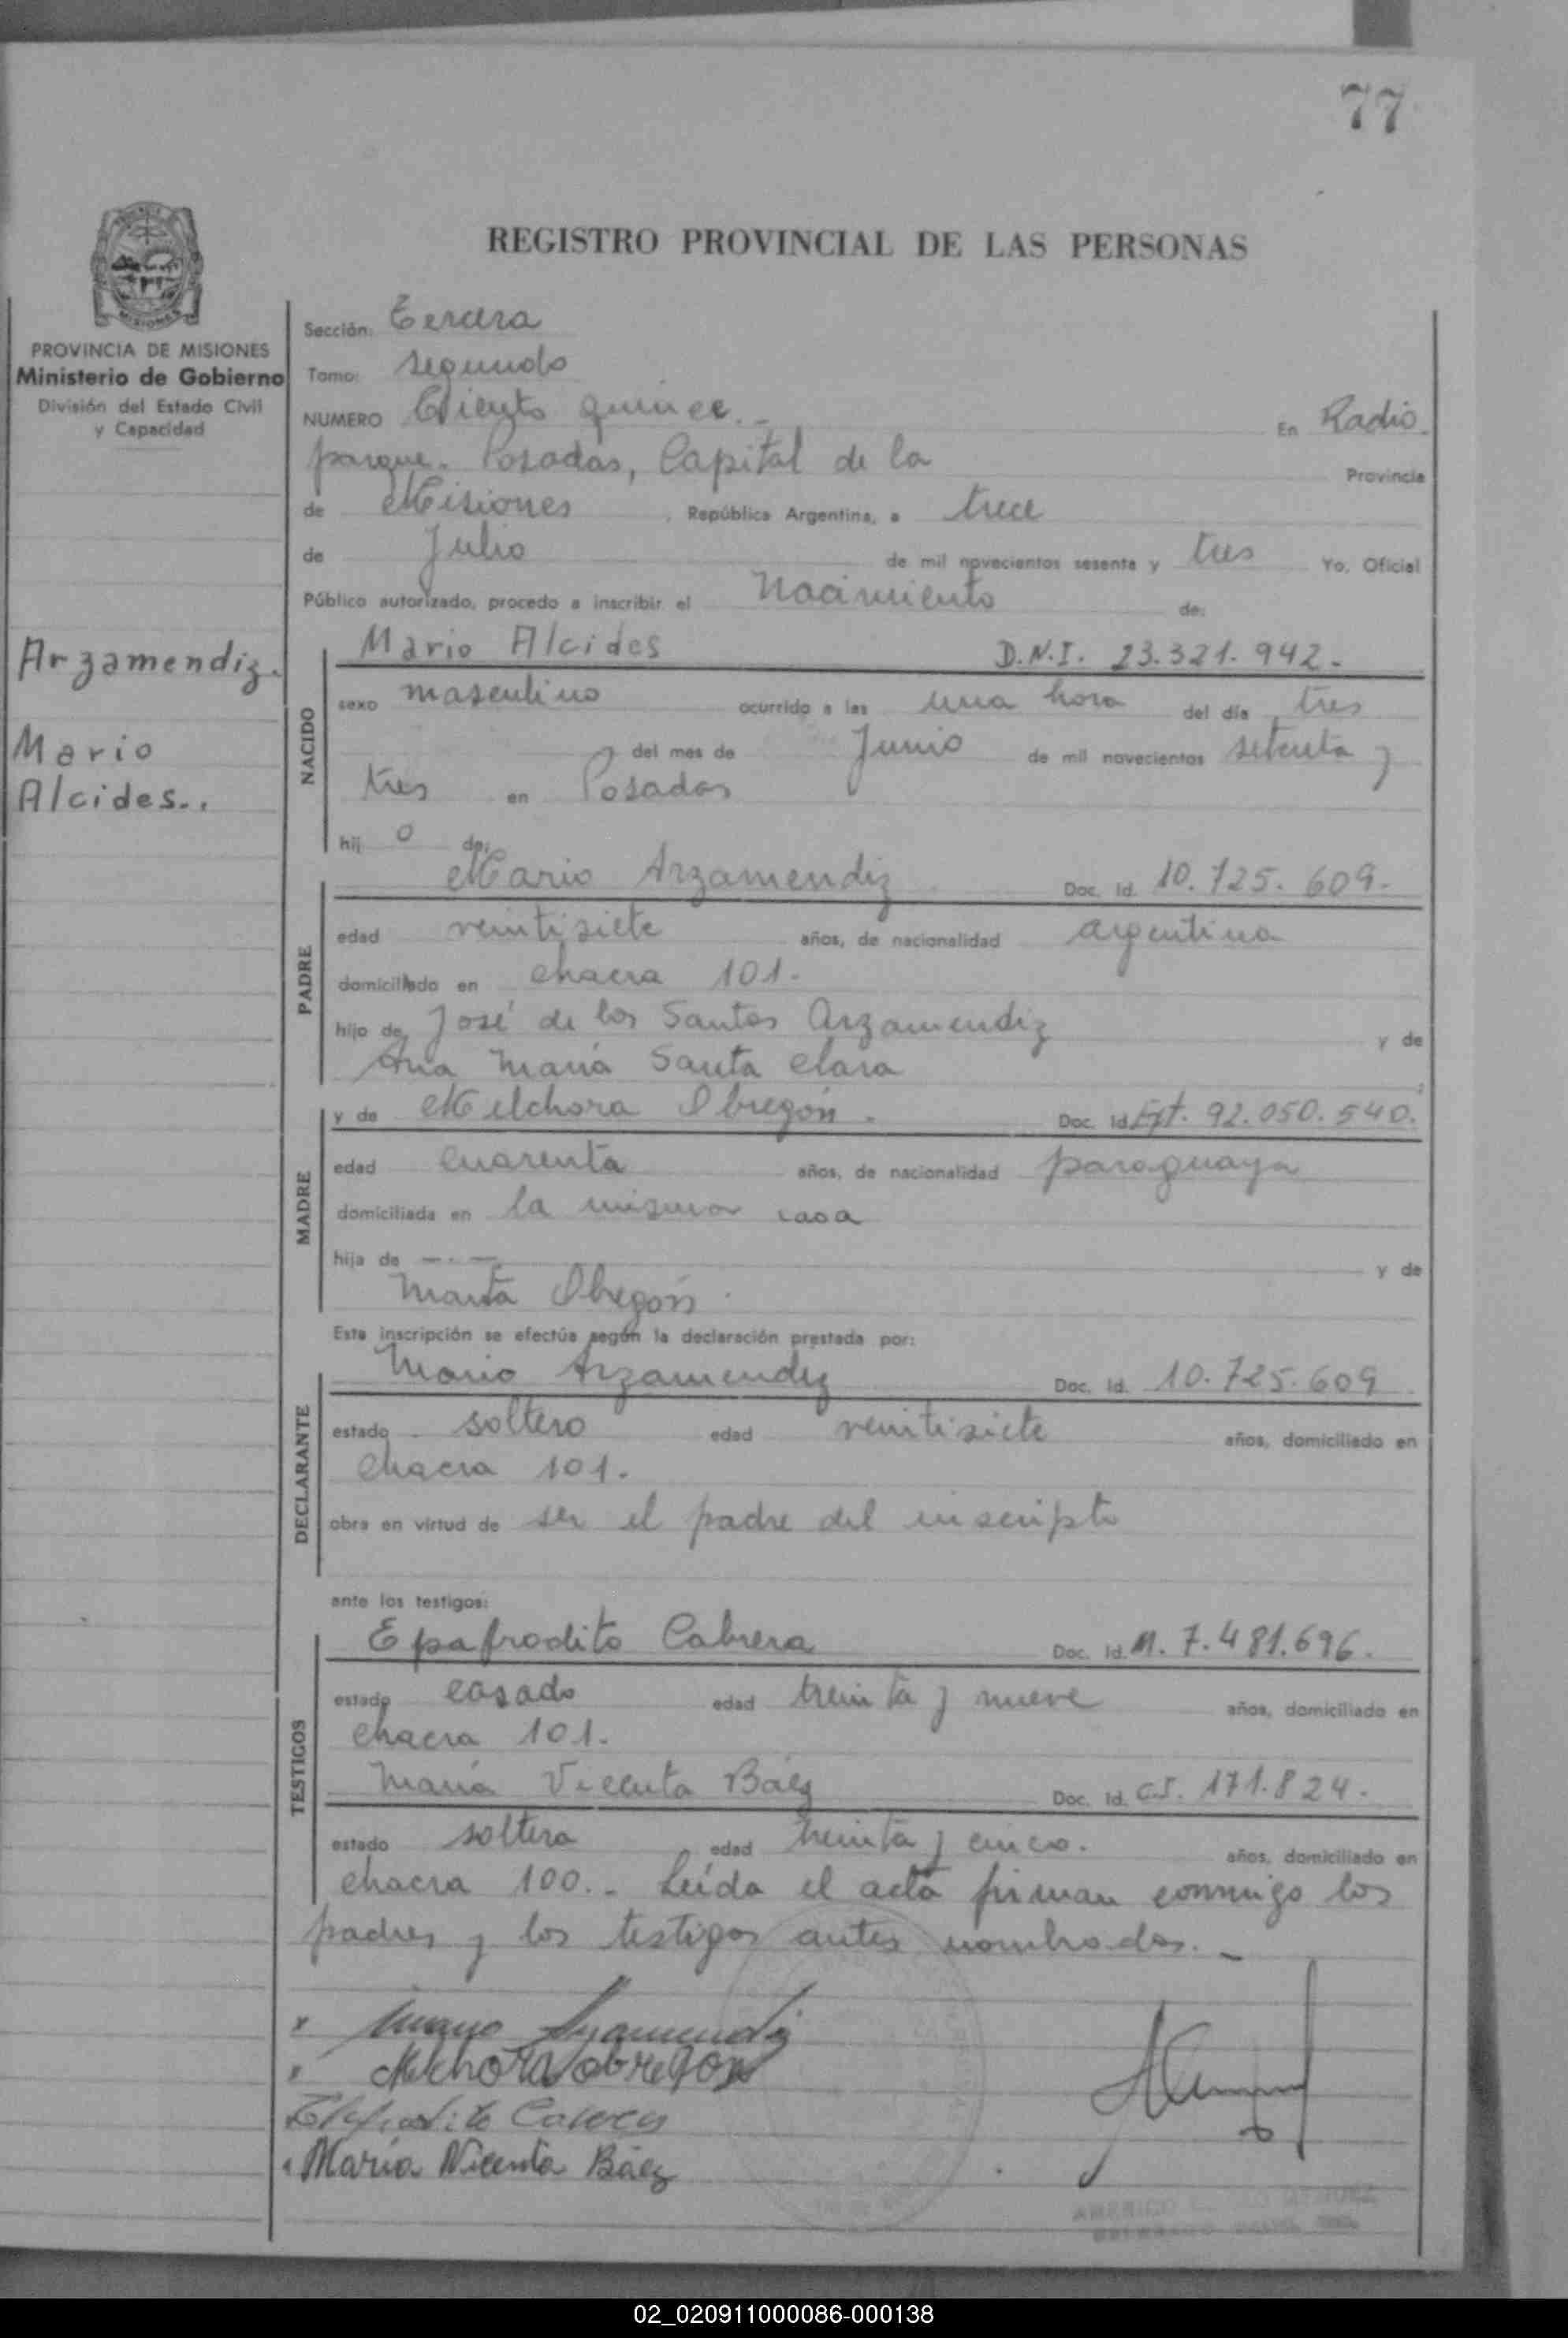 77
REGISTRO PROVINCIAL DE LAS PERSONAS
PROVINCIA DE MISIONES
Ministerio de Gobierno
División del Estado Civil
y Capacidad
Sección: Tercera
Tomo: segundo
NUMERO Ciento quince.- En Radio
parque. Posadas, Capital de la Provincia
de Misiones, República Argentina, a trece
de Julio de mil novecientos sesenta y tres Yo, Oficial
Público autorizado, procedo a inscribir el Nacimiento de:
Arzamendiz.
Mario
Alcides..
NACIDO
Mario Alcides D.N.I. 23.321.942.-
sexo masculino ocurrido a las una hora del día tres
del mes de Junio de mil novecientos setenta y
tres en Posadas
hij o de:
PADRE
Mario Arzamendiz Doc. Id. 10.725.609.-
edad veintisiete años, de nacionalidad argentina
domiciliado en chacra 101.-
hijo de José de los Santos Arzamendiz y de
Ana María Santa Clara
MADRE
y de Melchora Obregón. Doc. Id. Ext. 92.050.540.
edad cuarenta años, de nacionalidad paraguaya
domiciliada en la misma casa
hija de —.— y de
Marta Obregón.
Esta inscripción se efectúa según la declaración prestada por:
DECLARANTE
Mario Arzamendiz Doc. Id. 10.725.609
estado soltero edad veintisiete años, domiciliado en
chacra 101.
obra en virtud de ser el padre del inscripto
ante los testigos:
TESTIGOS
Epafrodito Cabrera Doc. Id. M. 7.481.696.
estado casado edad treinta y nueve años, domiciliado en
chacra 101.
María Vicenta Báez Doc. Id. C.I. 171.824.
estado soltera edad treinta y cinco. años, domiciliado en
chacra 100.- Leída el acta firman conmigo los
padres y los testigos antes nombrados.-
Mario Arzamendiz
Melchora obregon
Epafrodito Cabrera
María Vicenta Báez
02_020911000086-000138